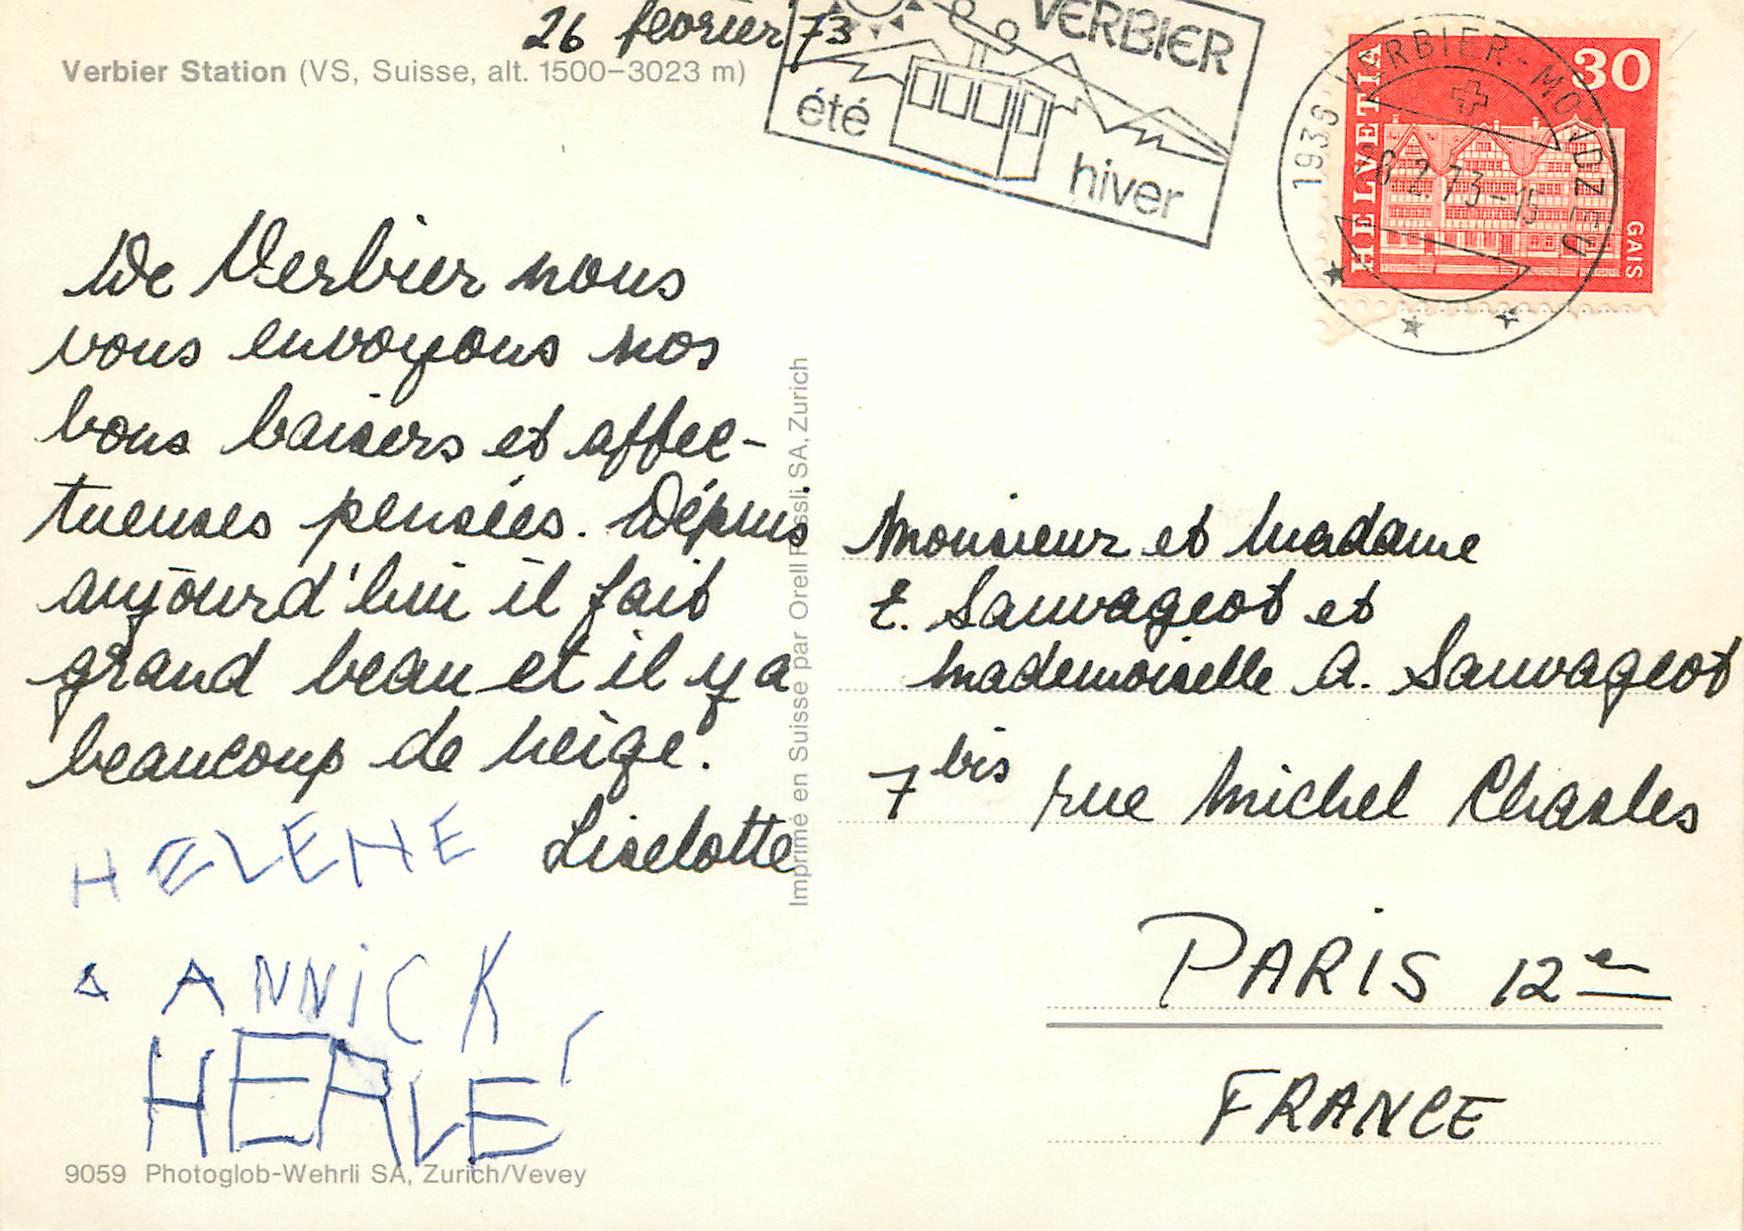 26 février 73
Verbier Station (VS, Suisse, alt. 1500–3023 m)
VERBIER
été
hiver
1936 VERBIER-MONDZEU
8.2.73-15
HELVETIA
30
GAIS
De Verbier nous
vous envoyons nos
bons baisers et affec-
tueuses pensées. Dépuis
aujourd'hui il fait
grand beau et il y a
beaucoup de neige.
Liselotte
HELENE
ANNiCK
HERVÉ
9059 Photoglob-Wehrli SA, Zurich/Vevey
Imprimé en Suisse par Orell Füssli SA, Zurich
Monsieur et Madame
E. Sauvageot et
Mademoiselle A. Sauvageot
7 bis rue Michel Chasles
PARIS 12e
FRANCE